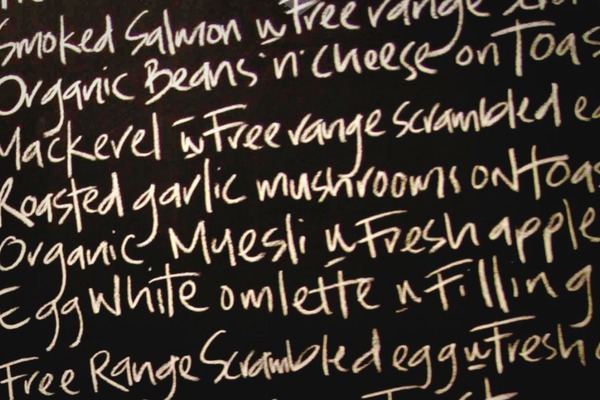 Smoked Salmon w Free range
Organic Beans 'n' Cheese on Toas
Mackerel w Free range scrambled e
Roasted garlic mushrooms on toas
Organic Muesli w Fresh apple
Egg White omlette w Filling
Free Range Scrambled egg w Fresh